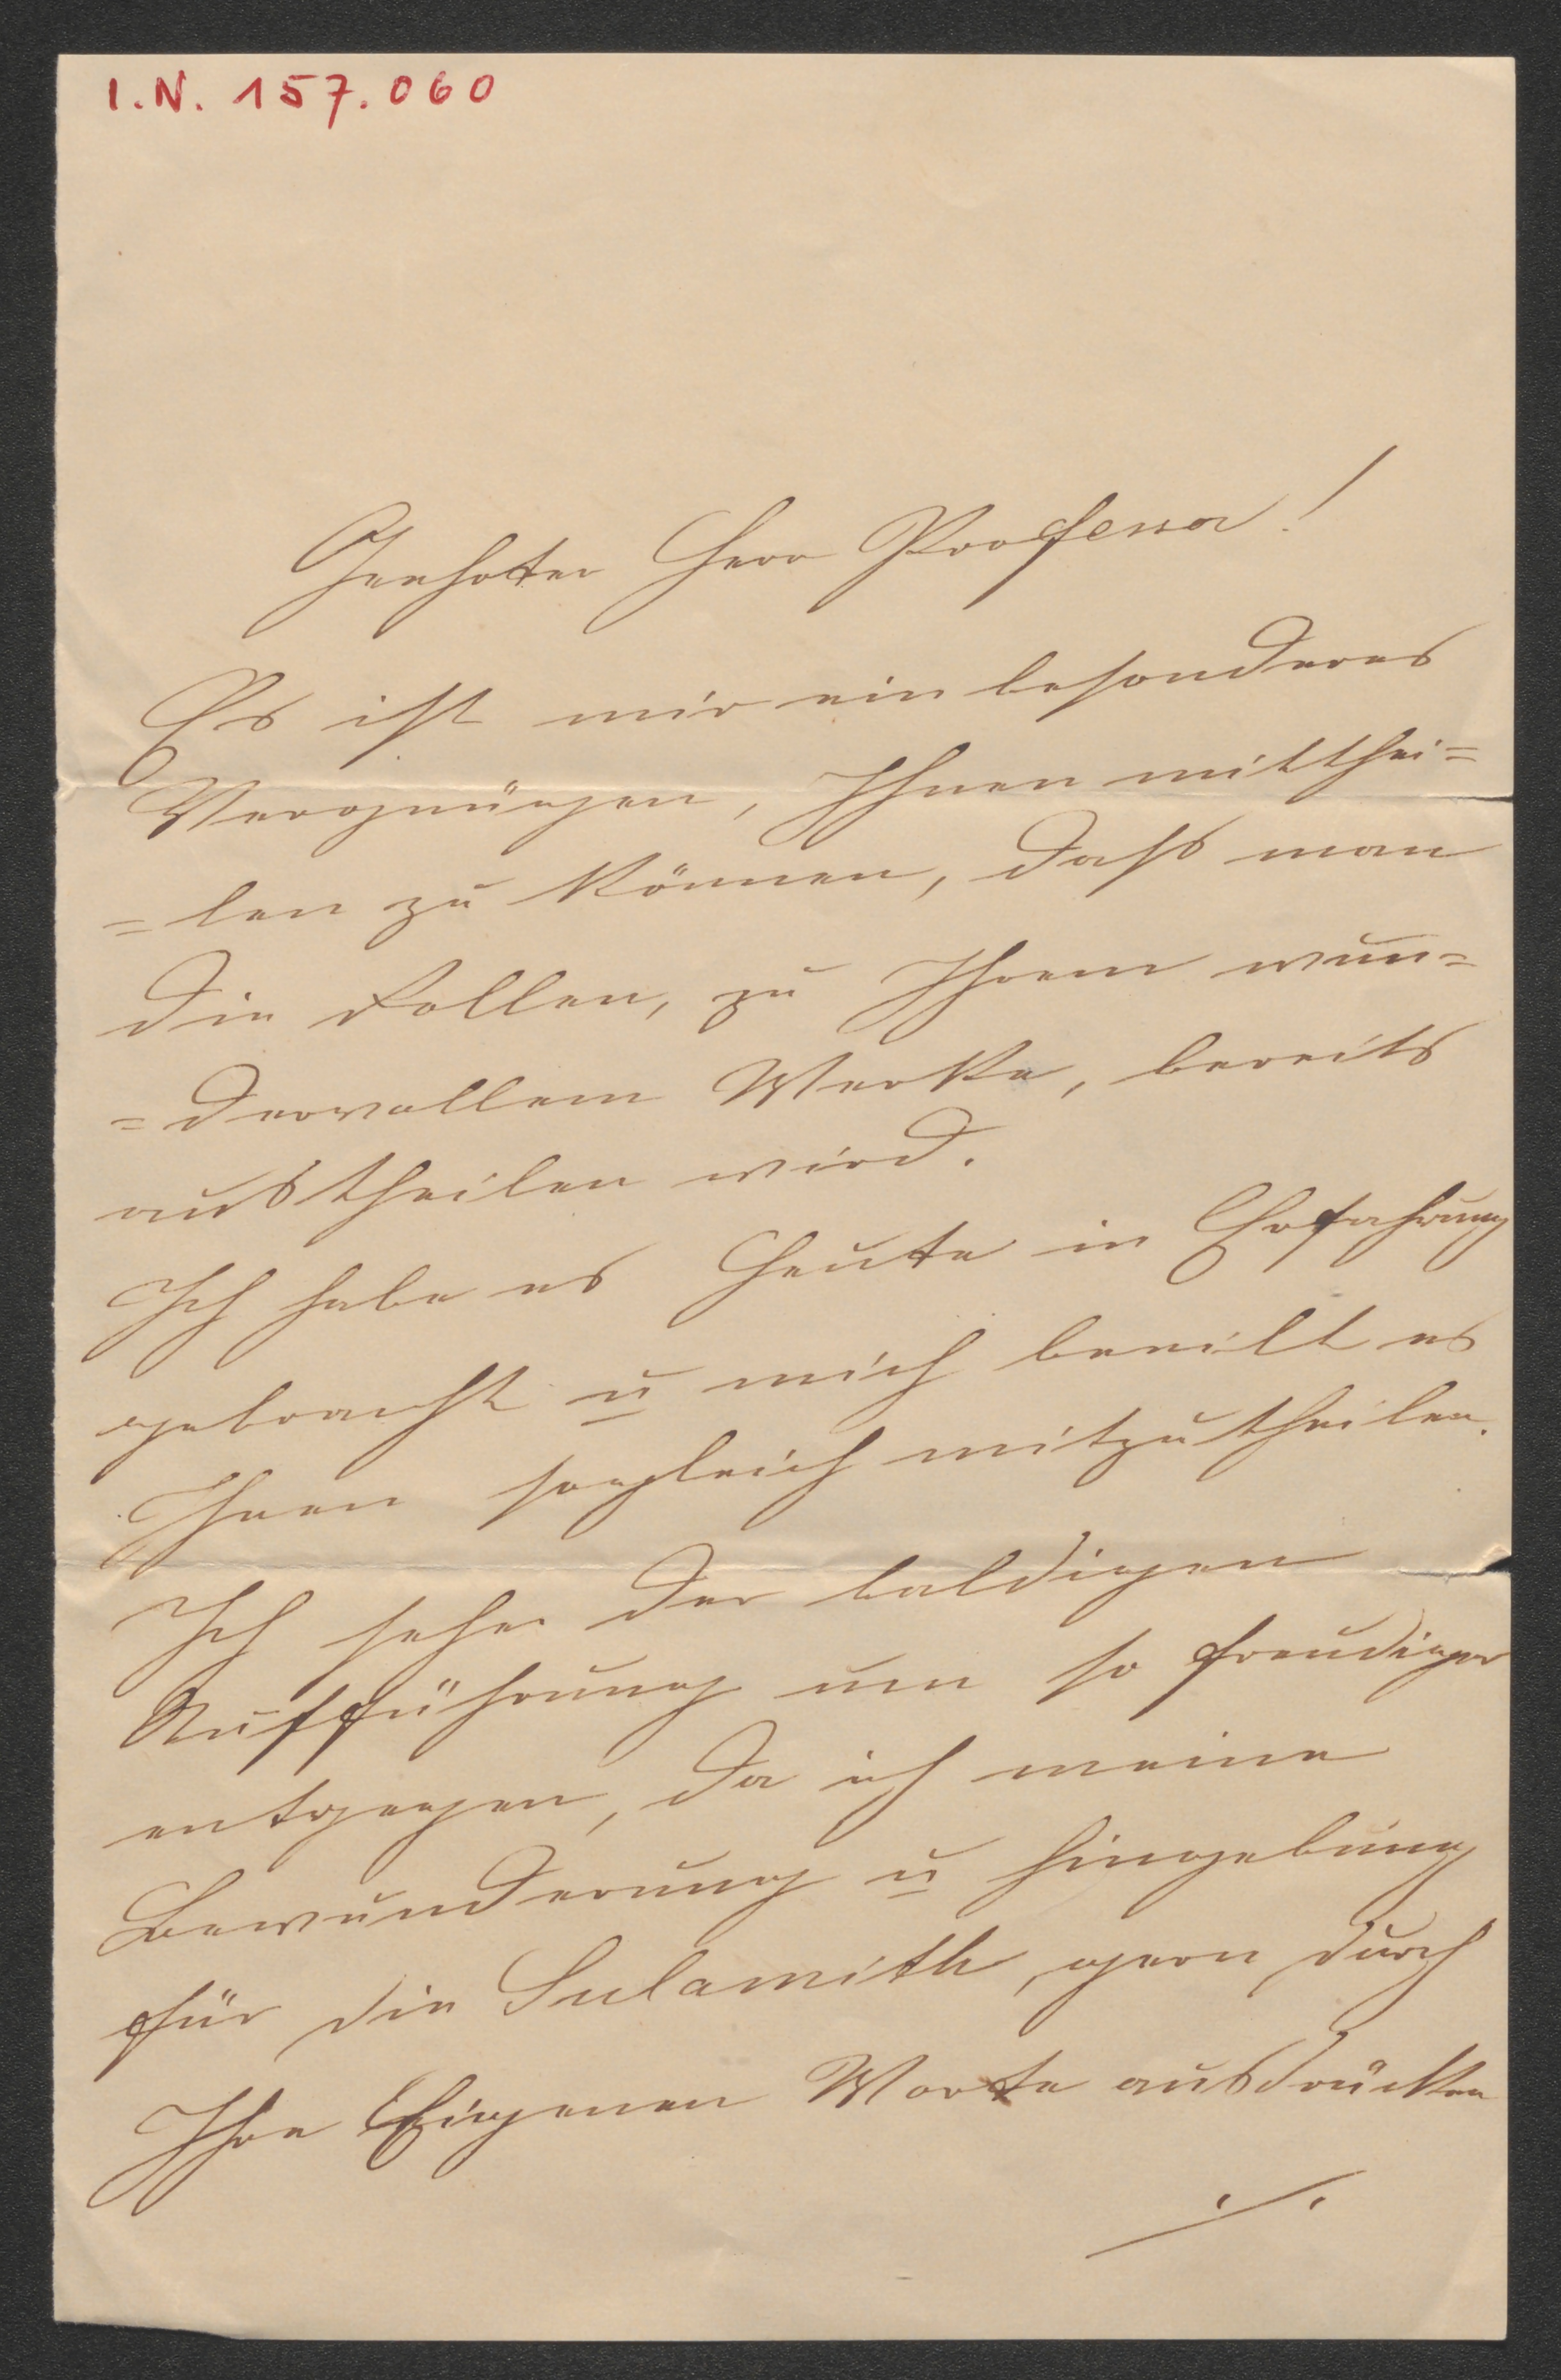 I.N. 157.060
Geehrter Herr Professor!
Es ist mir ein besonderes
Vergnügen, Ihnen mitthei=
=len zu können, daß man
die Rollen, zu Ihrem wun=
=dervollem Werke, bereits
austheilen wird.
Ich habe es heute in Erfahrung
gebracht u mich beeilt es
Ihnen sogleich mitzutheilen.
Ich sehe der baldigen
Aufführung um so freudiger
entgegen, da ich meine
Bewunderung u Hingebung
für die Sulamith, gern durch
Ihre Eigenen Worte ausdrücken
./.